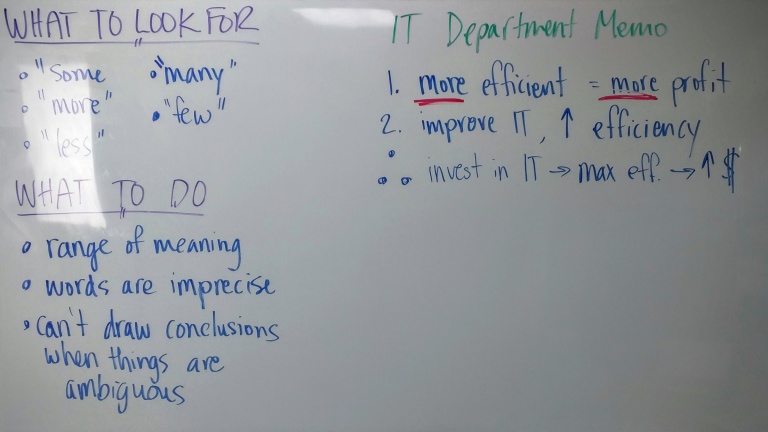 WHAT TO LOOK FOR
• "some
• "more"
• "less"
• "many"
• "few"
WHAT TO DO
• range of meaning
• words are imprecise
• can't draw conclusions
when things are
ambiguous
IT Department Memo
1. more efficient = more profit
2. improve IT, ↑ efficiency
∴ invest in IT → max eff. → ↑ $